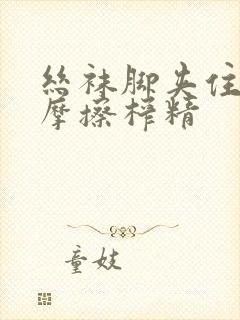 絲袜脚夹住
摩擦榨精
童妓